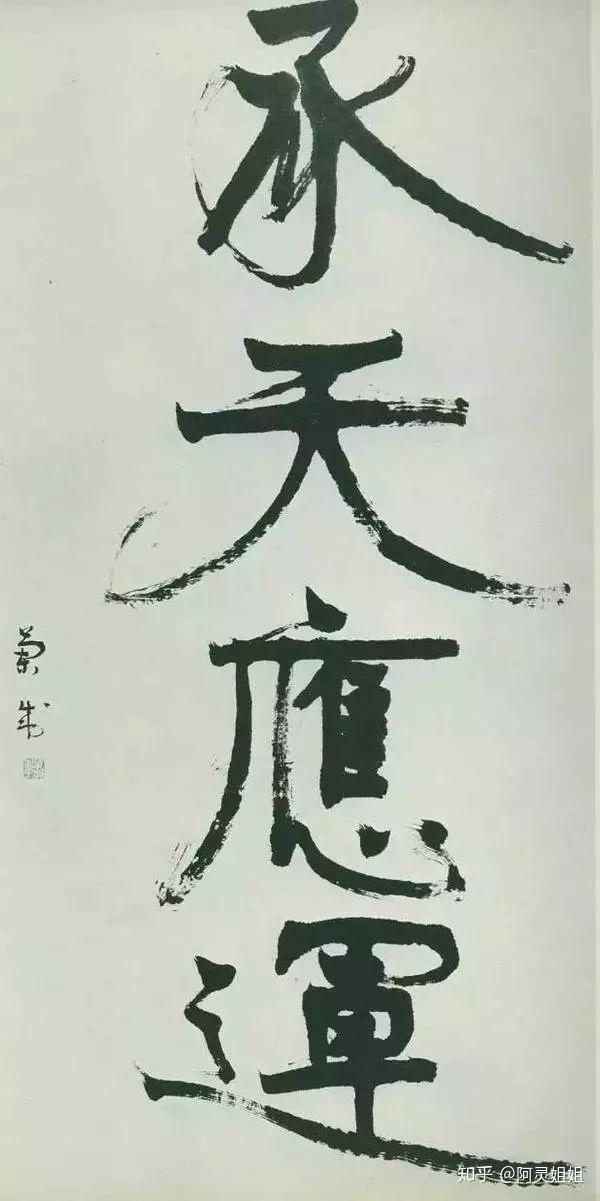 承天應運
蘭成
知乎 @阿灵姐姐